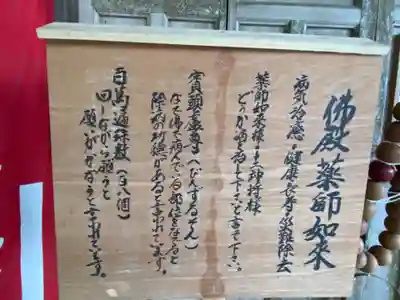 佛殿 薬師如来
病気治癒・健康長寿・災難除去
薬師如来様は神様
どうか病を治して下さいと言って下さい。
賓頭盧尊者(びんずるそん)
なで佛で病んでいる部位をなでると
除病の功徳があると言われています。
百萬遍珠數(百八個)
回しながら願うと
願いがかなうと言われています。